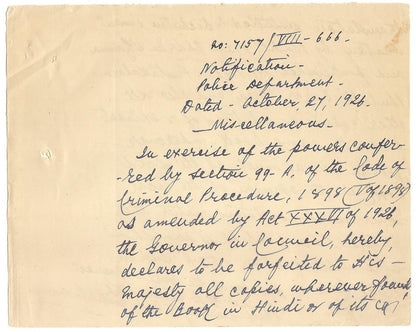 No: 7157/VIII-666.
Notification-
Police Department-
Dated - October, 27, 1926.
-Miscellaneous-
In exercise of the powers confer-
-red by section 99-A, of the Code of
Criminal Procedure, 1898 (V of 1898)
as amended by Act XXXVI of 1926,
the Governor in Council, hereby,
declares to be forfeited to His-
majesty all copies, wherever found,
of the book in Hindi or of its